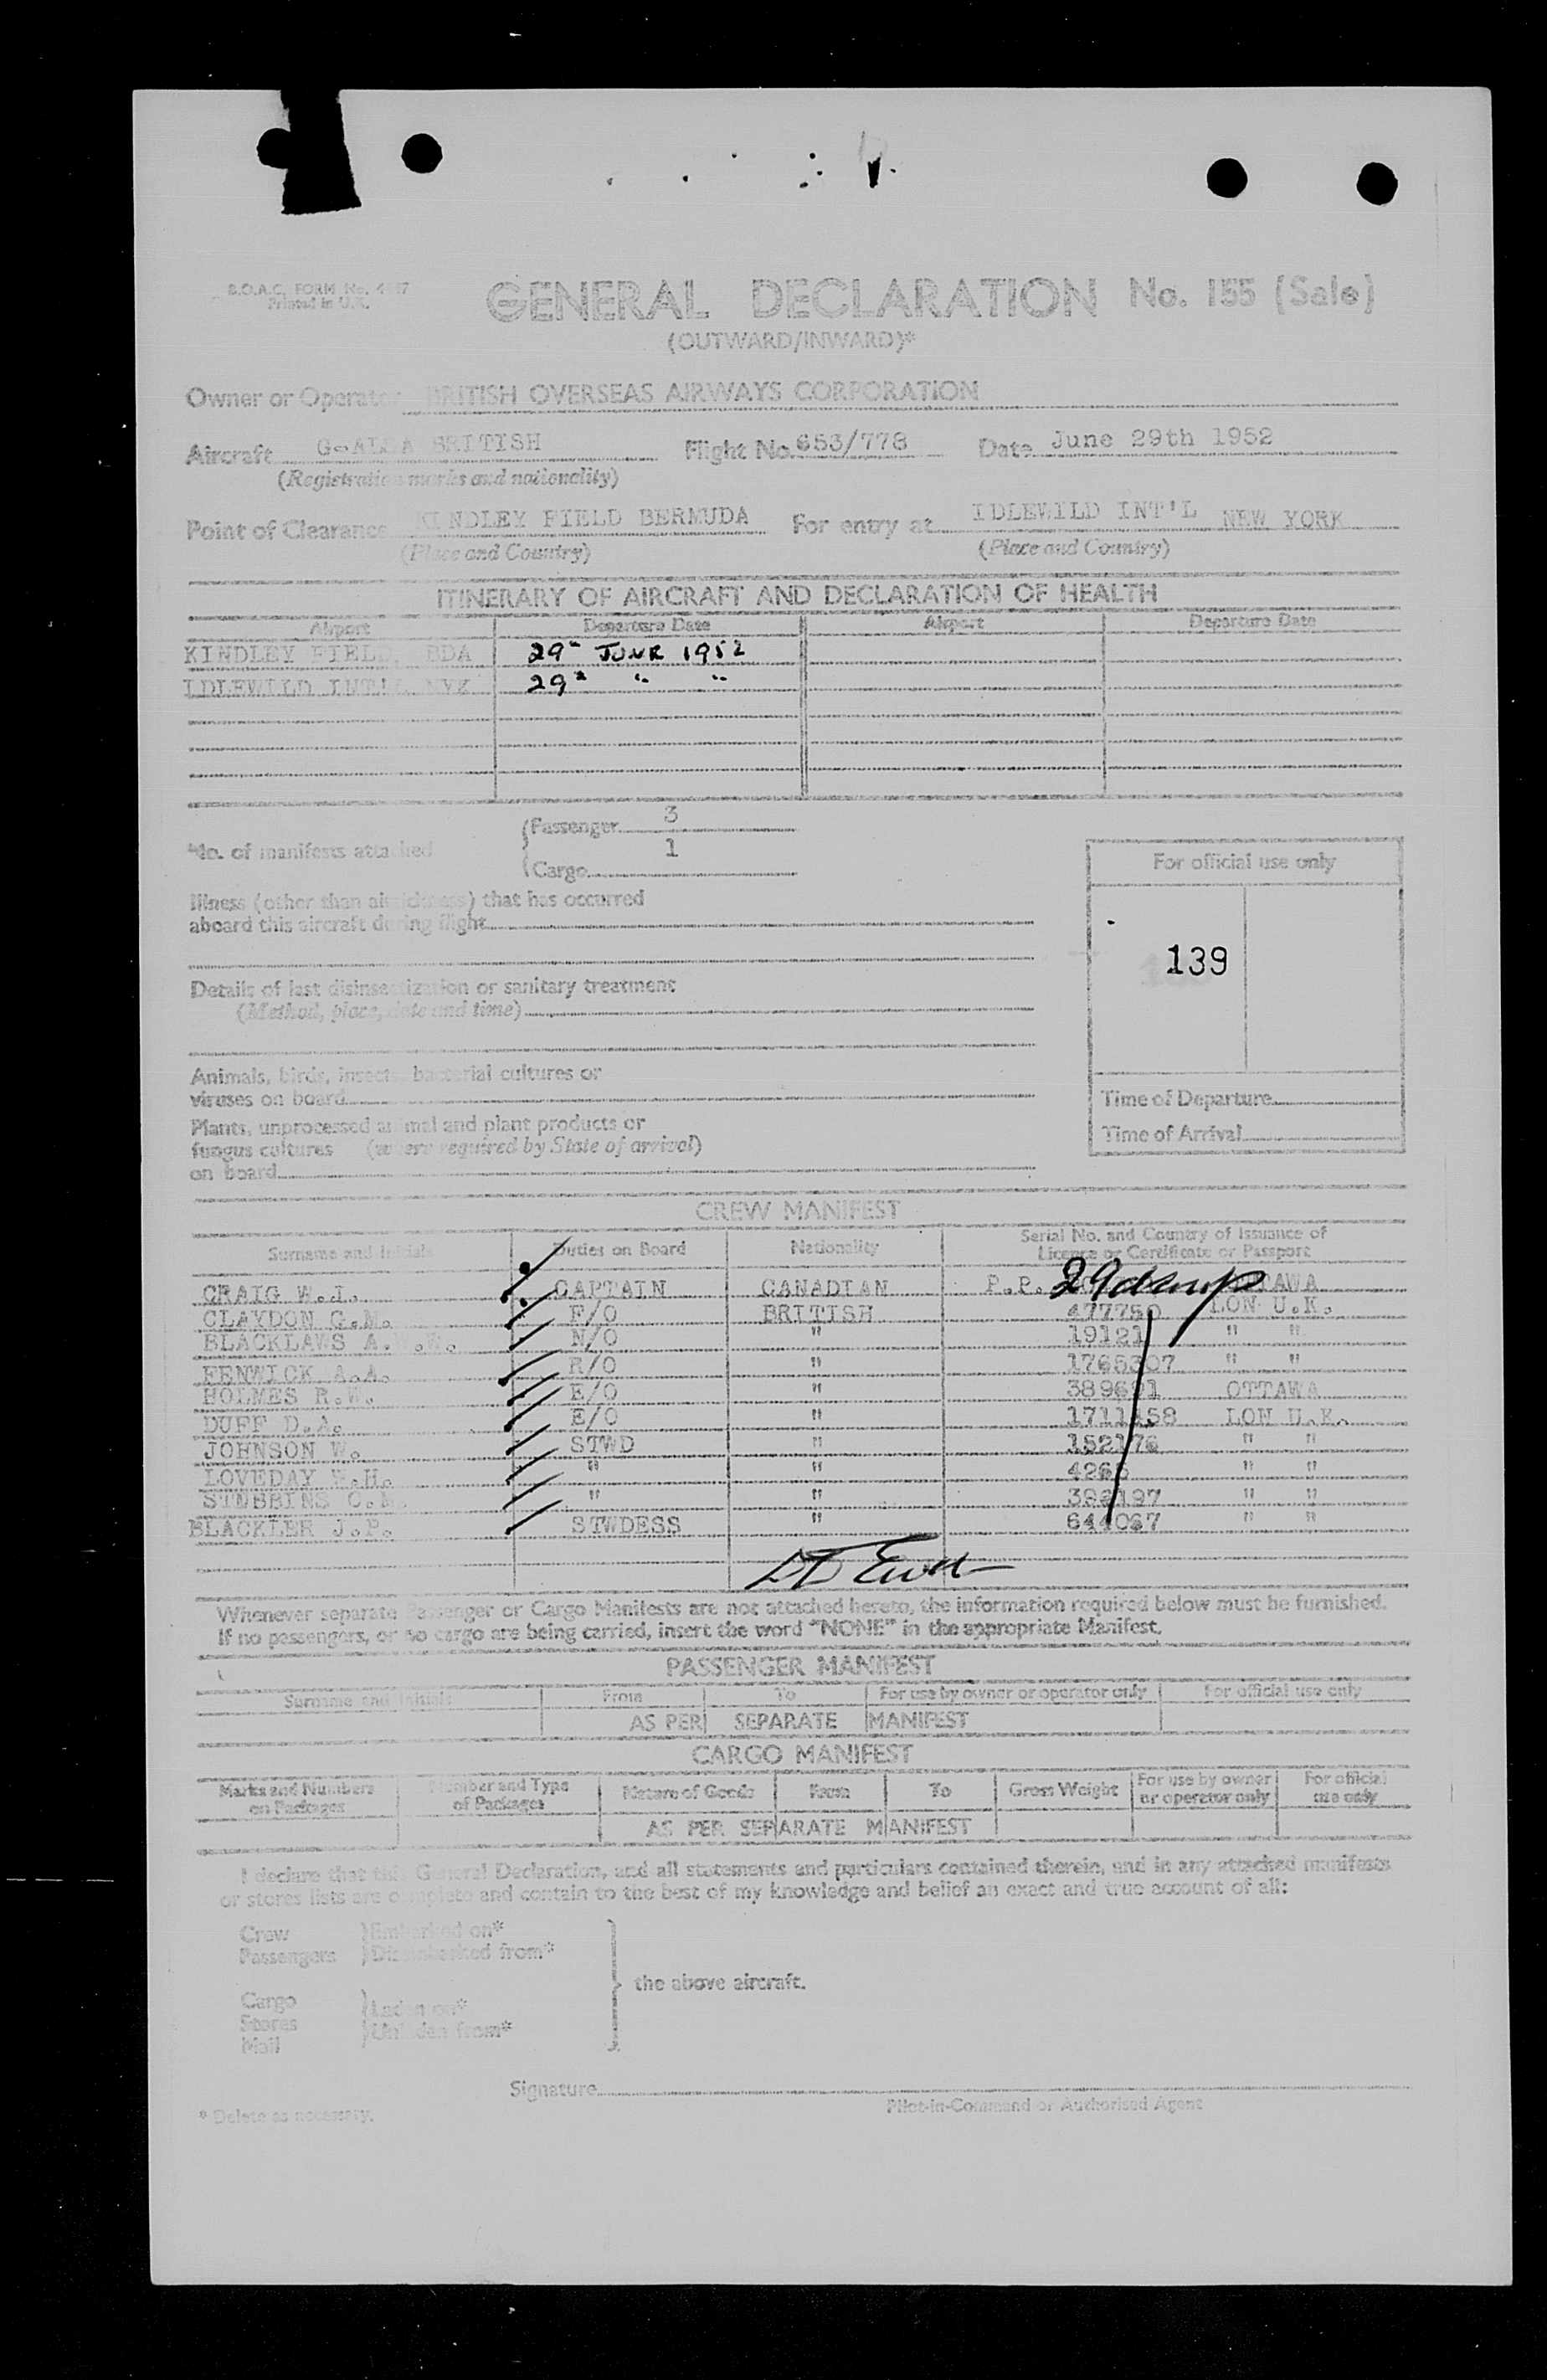 B.O.A.C. FORM No.
Printed in U.K.
GENERAL DECLARATION No. 155 (Sale)
(OUTWARD/INWARD)*
Owner or Operator BRITISH OVERSEAS AIRWAYS CORPORATION
Aircraft BRITISH Flight No. 653/778 Date June 29th 1952
(Registration marks and nationality)
Point of Clearance KINDLEY FIELD BERMUDA For entry at IDLEWILD INT'L NEW YORK
(Place and Country) (Place and Country)
ITINERARY OF AIRCRAFT AND DECLARATION OF HEALTH
Airport Departure Date Airport Departure Date
KINDLEY FIELD, BDA 29th JUNE 1952
IDLEWILD INT'L NYK 29th " "
No. of manifests attached
Passenger 3
Cargo 1
Illness (other than airsickness) that has occurred
aboard this aircraft during flight
Details of last disinsectization or sanitary treatment
(Method, place, date and time)
Animals, birds, insects, bacterial cultures or
viruses on board
Plants, unprocessed animal and plant products or
fungus cultures (where required by State of arrival)
on board
For official use only
139
Time of Departure
Time of Arrival
CREW MANIFEST
Surname and Initials Duties on Board Nationality Serial No. and Country of Issuance of
Licence or Certificate or Passport
CRAIG W.I. CAPTAIN CANADIAN P.P.
CLAYDON G.M. F/O BRITISH 477750 LON U.K.
BLACKLAWS N/O " 19121 " "
FENWICK A.A. R/O " " "
HOLMES R.W. E/O " OTTAWA
DUFF D.A. E/O " LON U.K.
JOHNSON W. STWD " 152176 " "
LOVEDAY W.H. " " " "
STUBBINS " " " "
BLACKLER J.P. STWDESS " 644067 " "
Whenever separate Passenger or Cargo Manifests are not attached hereto, the information required below must be furnished.
If no passengers, or no cargo are being carried, insert the word "NONE" in the appropriate Manifest.
PASSENGER MANIFEST
Surname and Initials From To For use by owner or operator only For official use only
AS PER SEPARATE MANIFEST
CARGO MANIFEST
Marks and Numbers on Packages Number and Type of Packages Nature of Goods From To Gross Weight For use by owner or operator only For official use only
AS PER SEPARATE MANIFEST
I declare that this General Declaration, and all statements and particulars contained therein, and in any attached manifests
or stores lists are complete and contain to the best of my knowledge and belief an exact and true account of all:
Crew Embarked on*
Passengers Disembarked from*
the above aircraft.
Cargo Laden on*
Stores Unladen from*
Mail
Signature
Pilot-in-Command or Authorised Agent
* Delete as necessary.